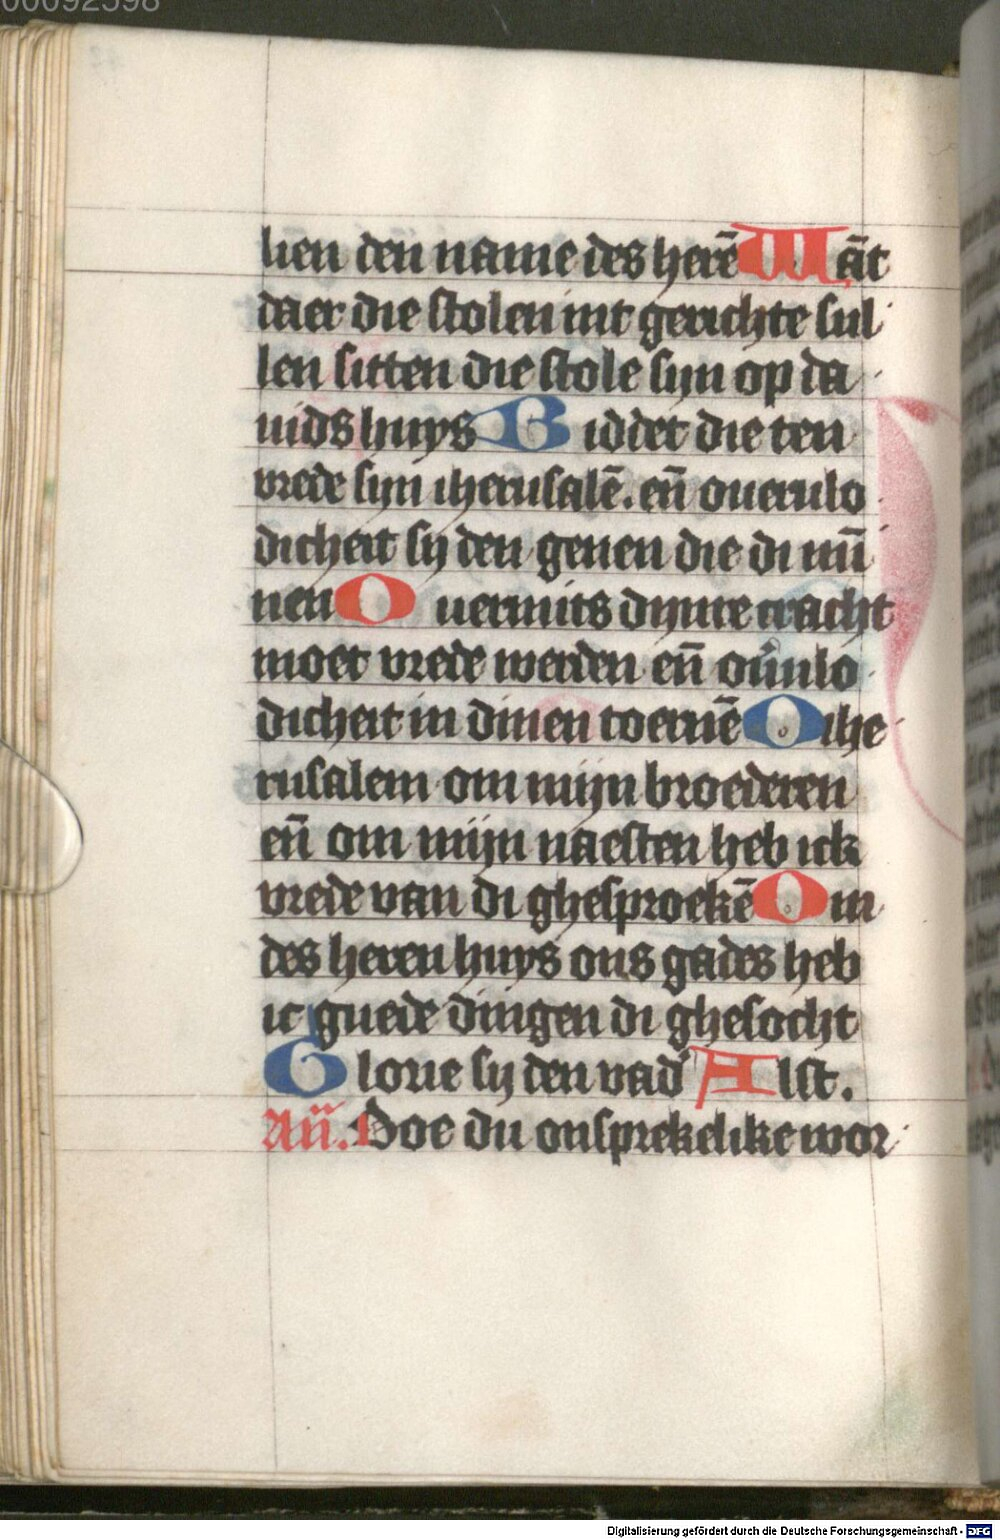 00092598
lien den name des herē Wāt
daer die stolen int gerichte sul
len sitten die stole sijn op da
uids huys Biddet die ten
vrede sijn iherusalē. eñ oueruło
dicheit sij den genen die di mīn
nen Ouermits dijnre cracht
moet vrede werden eñ oůulo
dicheit in dinen toernē O ihe
rusalem om mijn broederen
eñ om mijn naesten heb ick
vrede van di ghesproekē Om
des heren huys ons gades heb
ic guede dingen di ghesocht
Glorie sij den vad' Alst.
Añ. Doe du onsprekelike wor
Digitalisierung gefördert durch die Deutsche Forschungsgemeinschaft - DFG